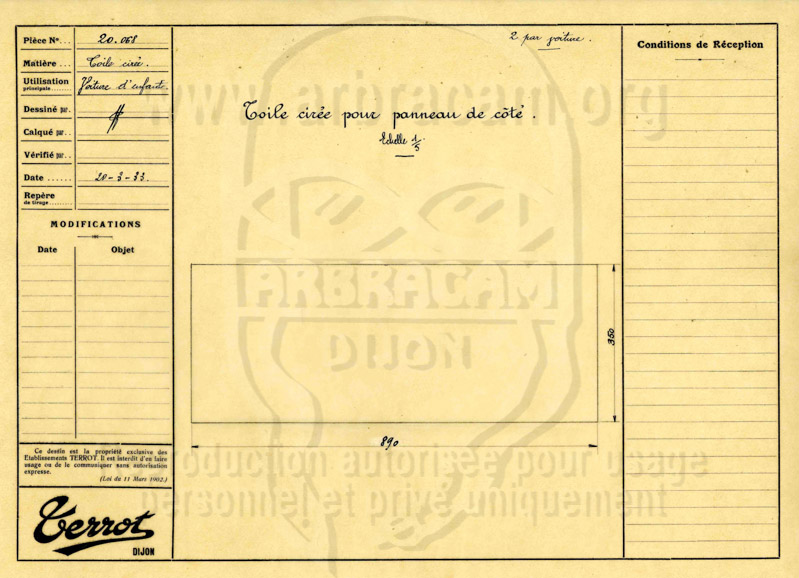 Pièce No... 20.068
Matière... Toile cirée.
Utilisation principale...... Voiture d'enfants.
Dessiné par.
Calqué par..
Vérifié par..
Date ...... 20-3-33.
Repère de tirage.........
MODIFICATIONS
Date Objet
Ce dessin est la propriété exclusive des
Etablissements TERROT. Il est interdit d'en faire
usage ou de le communiquer sans autorisation
expresse.
(Loi du 11 Mars 1902.)
Terrot
DIJON
2 par voiture.
Toile cirée pour panneau de côté.
Echelle 1/5
350
890
Conditions de Réception
www.arbracam.org
ARBRACAM
DIJON
reproduction autorisée pour usage
personnel et privé uniquement